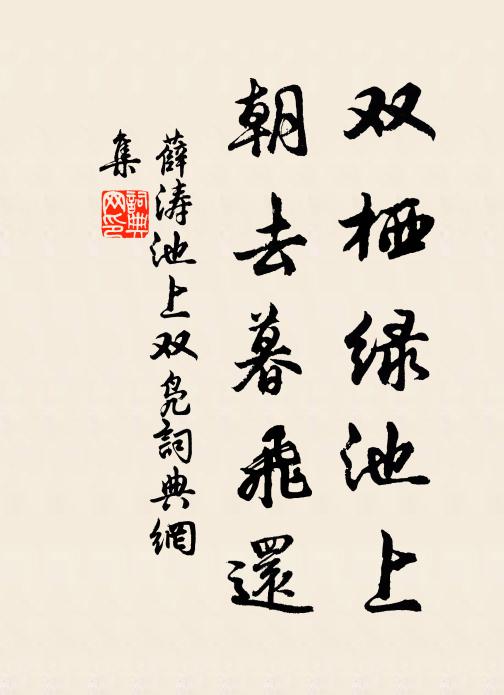 双栖绿池上
朝去暮飛還
薛涛池上双凫詞典網
集
詞典网印